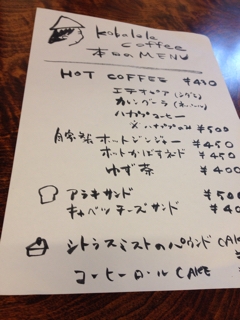 kobalele
coffee
本日のMENU
HOT COFFEE ¥450
エチオピア (シダモ)
カレングーラ
ハナブサコーヒー
¥500
自家製ホットジンジャー ¥450
ホットかぼすネード ¥450
ゆず茶 ¥400
アラキサンド ¥500
キャベツチーズサンド ¥400
シトラスミストのパウンドCAKE
コーヒーロールCAKE